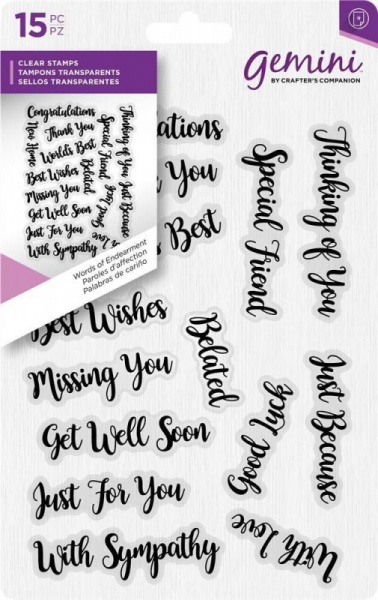 15 PC
PZ
CLEAR STAMPS
TAMPONS TRANSPARENTES
SELLOS TRANSPARENTES
gemini
BY CRAFTER'S COMPANION
Congratulations
New Home
Thank You
World's Best
Best Wishes
Missing You
Get Well Soon
Just For You
With Sympathy
Belated
Special Friend
Good Luck
With Love
Thinking of You
Just Because
Words of Endearment
Paroles d'affection
Palabras de cariño
ations
You
Best
Special Friend
Thinking of You
Best Wishes
Missing You
Belated
Get Well Soon
Good Luck
Just Because
Just For You
With Sympathy
With Love